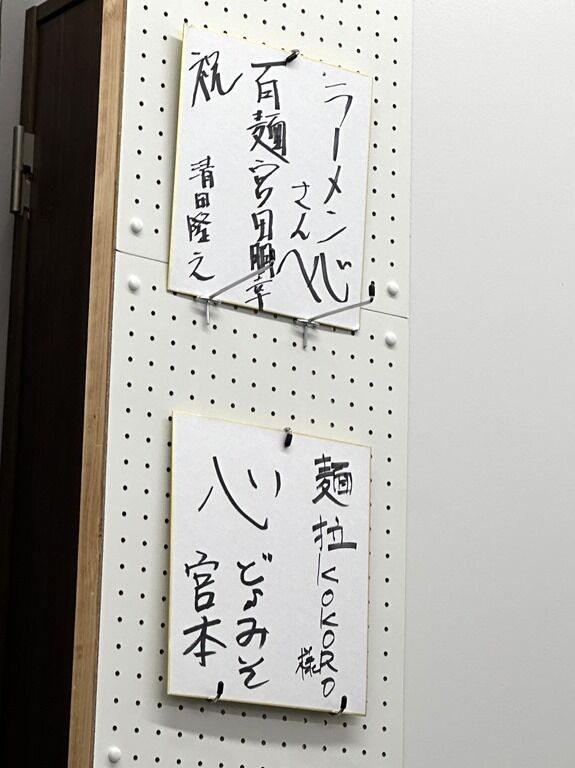 ラーメン心
さんへ
百麺 宮田朋幸
祝
清田隆之
麺拉KOKORO
様
心
どみそ
宮本